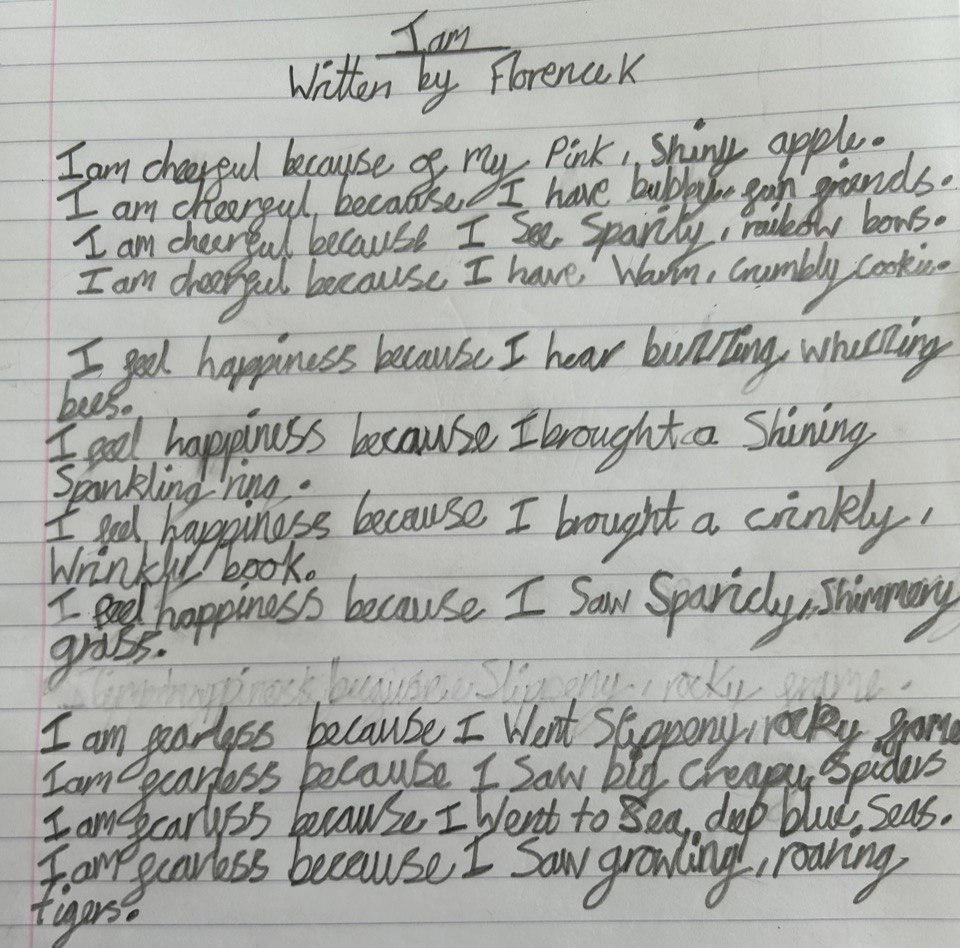 I am
Written by Florence K
I am cheerful because of my Pink, Shiny apple.
I am cheerful because I have bubbly, fun friends.
I am cheerful because I See Sparkly, raibow bows.
I am cheerful because I have Warm, crumbly cookie.
I feel happiness because I hear buzzzing, whezzing
bees.
I feel happiness because I brought a Shining
Sparkling ring.
I feel happiness because I brought a crinkly,
Wrinkly book.
I feel happiness because I Saw Sparkly, Shimmery
grass.
because Slippony, rocky
I am fearless because I Went Slippony, rocky
I am fearless because I Saw big creapy Spiders
I am fearless because I Went to Sea, deep blue Seas.
I am fearless because I Saw growling, roaring
tigers.